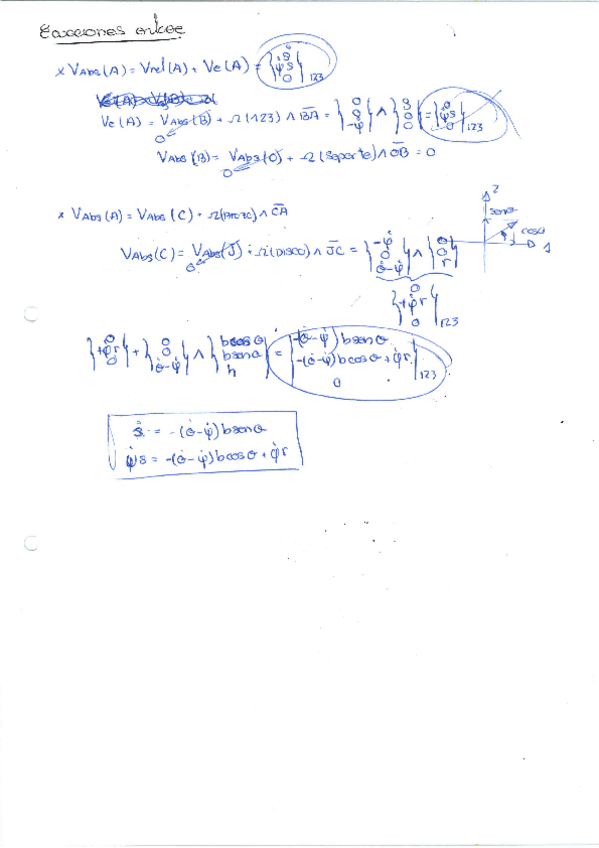 Ecuaciones enlace
× VAbs(A) = Vrel(A) + Ve(A) = {ṡ ψ̇s 0}123
Ve(A) = VAbs(B) + Ω(123) ∧ BA = {0 0 -ψ̇} ∧ {s 0 0} = {0 ψ̇s 0}123
0
VAbs(B) = VAbs(O) + Ω(Soporte) ∧ OB = 0
0
× VAbs(A) = VAbs(C) + Ω(Arozc) ∧ CA
2
senθ
cosθ
1
VAbs(C) = VAbs(J) + Ω(Disco) ∧ JC = {-φ̇ 0 θ̇-ψ̇} ∧ {0 0 r}
0
{0 +φ̇r 0}123
{0 +φ̇r 0} + {0 0 θ̇-ψ̇} ∧ {bcosθ bsenθ h} = {-(θ̇-ψ̇)bsenθ -(θ̇-ψ̇)bcosθ+φ̇r 0}123
ṡ = -(θ̇-ψ̇)bsenθ
ψ̇s = -(θ̇-ψ̇)bcosθ+φ̇r